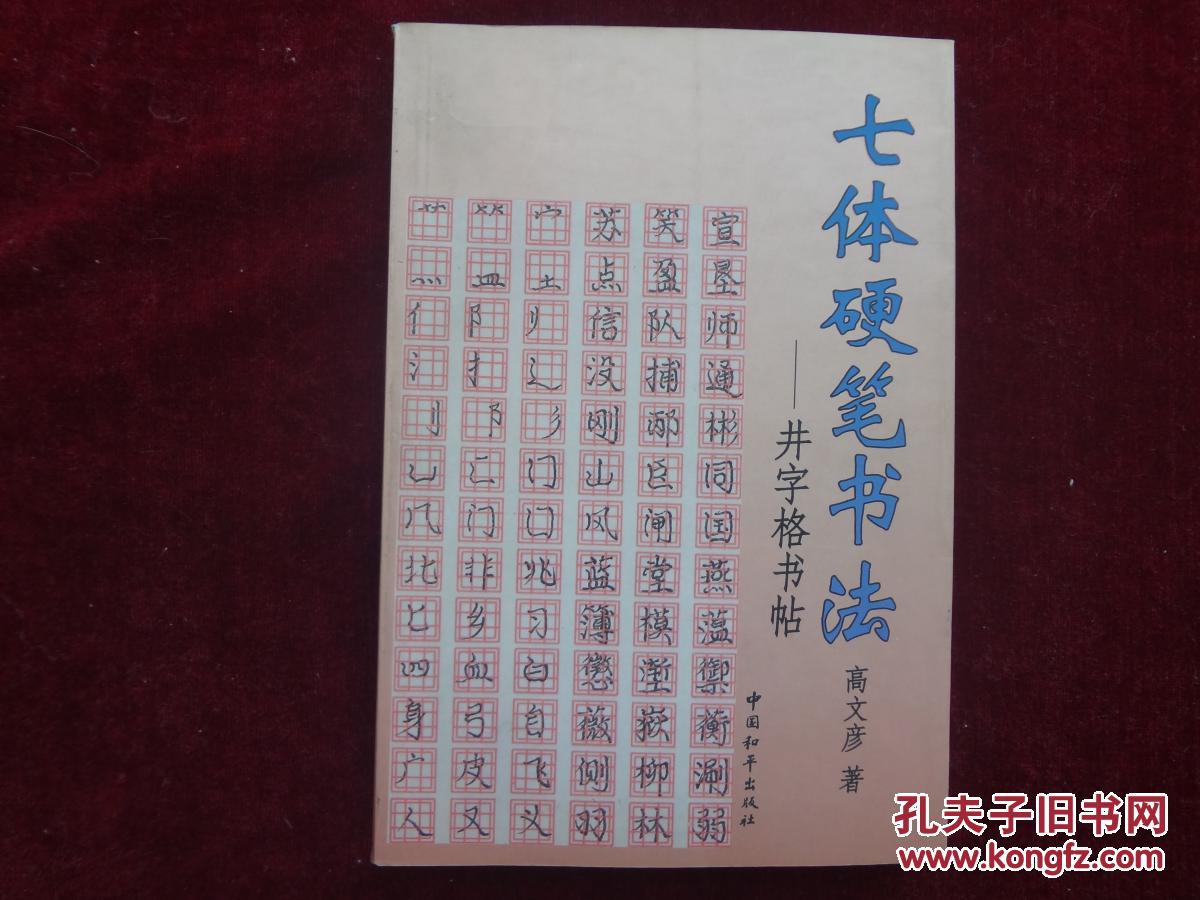 七体硬笔书法
——井字格书帖
高文彦 著
中国和平出版社
艹 𥫗 宀 苏 笑 宣
灬 皿 土 点 盈 垦
亻 阝 丿 信 队 师
氵 扌 辶 没 捕 通
刂 阝 彡 刚 邴 彬
凵 匚 冂 山 臣 同
几 门 囗 风 闸 国
北 非 兆 蓝 堂 燕
匕 乡 习 簿 模 蕰
四 血 白 懲 堑 禦
身 弓 自 薇 嶽 衡
广 皮 飞 侧 柳 涮
人 又 义 羽 林 弱
孔夫子旧书网
www.kongfz.com